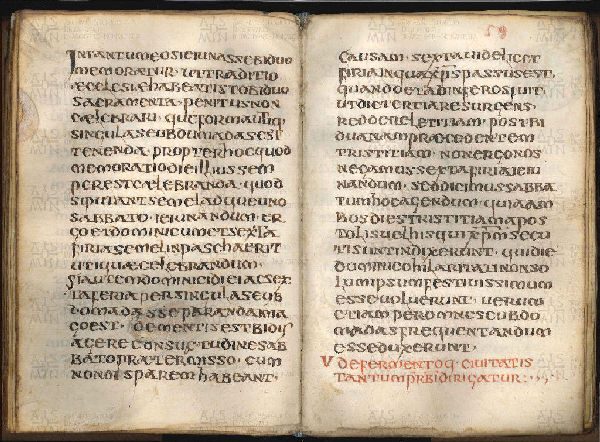 INTANTUM EOS IEIUNASSE BIDUO
MEMORATUR· UT TRADITIO
AECLESIAE HABEAT ISTO BIDUO
SACRAMENTA· PENITUS NON
CAELEBRARI· QUE FORMA UTIQ·
SINGULAS EUBDUMADAS EST
TENENDA· PROPTER HOC QUOD
MEMORATIO DIEI ILLIUS SEM
PER EST CAELEBRANDA· QUOD
SI PUTANT SEMEL ADQUE UNO
SABBATO· IEIUNANDUM· ER
GO ET DOMINICUM ET SEXTA
FIRIA SEMEL IN PASCHA ERIT
UTIQUAE CELEBRANDUM·
SI AUTEM DOMINICI DIEI AC SEX
TA FERIA PER SINGULAS EUB
DOMADAS SEPARANDA IMA
GO EST· DEMENTIS EST BIDUI
AGERE CONSUETUDINE SAB
BATO PRAETERMISSO· CUM
NON DISPAREM HABEANT·
59
CAUSAM· SEXTA UIDELICET
FIRIA IN QUA XPS PASSUS EST,
QUANDO ET AD INFEROS FUIT
UT DIE TERTIA RESURGENS·
REDDERE LETITIAM· POST BI
DUANAM PRAECEDENTEM
TRISTITIAM· NON ERGO NOS
NEGAMUS SEXTA FIRIA IEIU
NANDUM· SED DICIMUS SABBA
TUM HOC AGENDUM· QUIA AM
BOS DIES TRISTITIAM APOS
TOLIS UEL HIS QUI XPM SECU
TI SUNT INDIXERUNT· QUI DIE
DOMINICO HILARITATI NON SO
LUM IPSUM FESTIUISSIMUM
ESSE UOLUERUNT· UERUM
ETIAM PER OMNES EUBDO
MADAS FREQUENTANDUM
ESSE DUXERUNT·
V DE FERMENTO Q· CIUITATIS
TANTUM PRBI DIRIGATUR